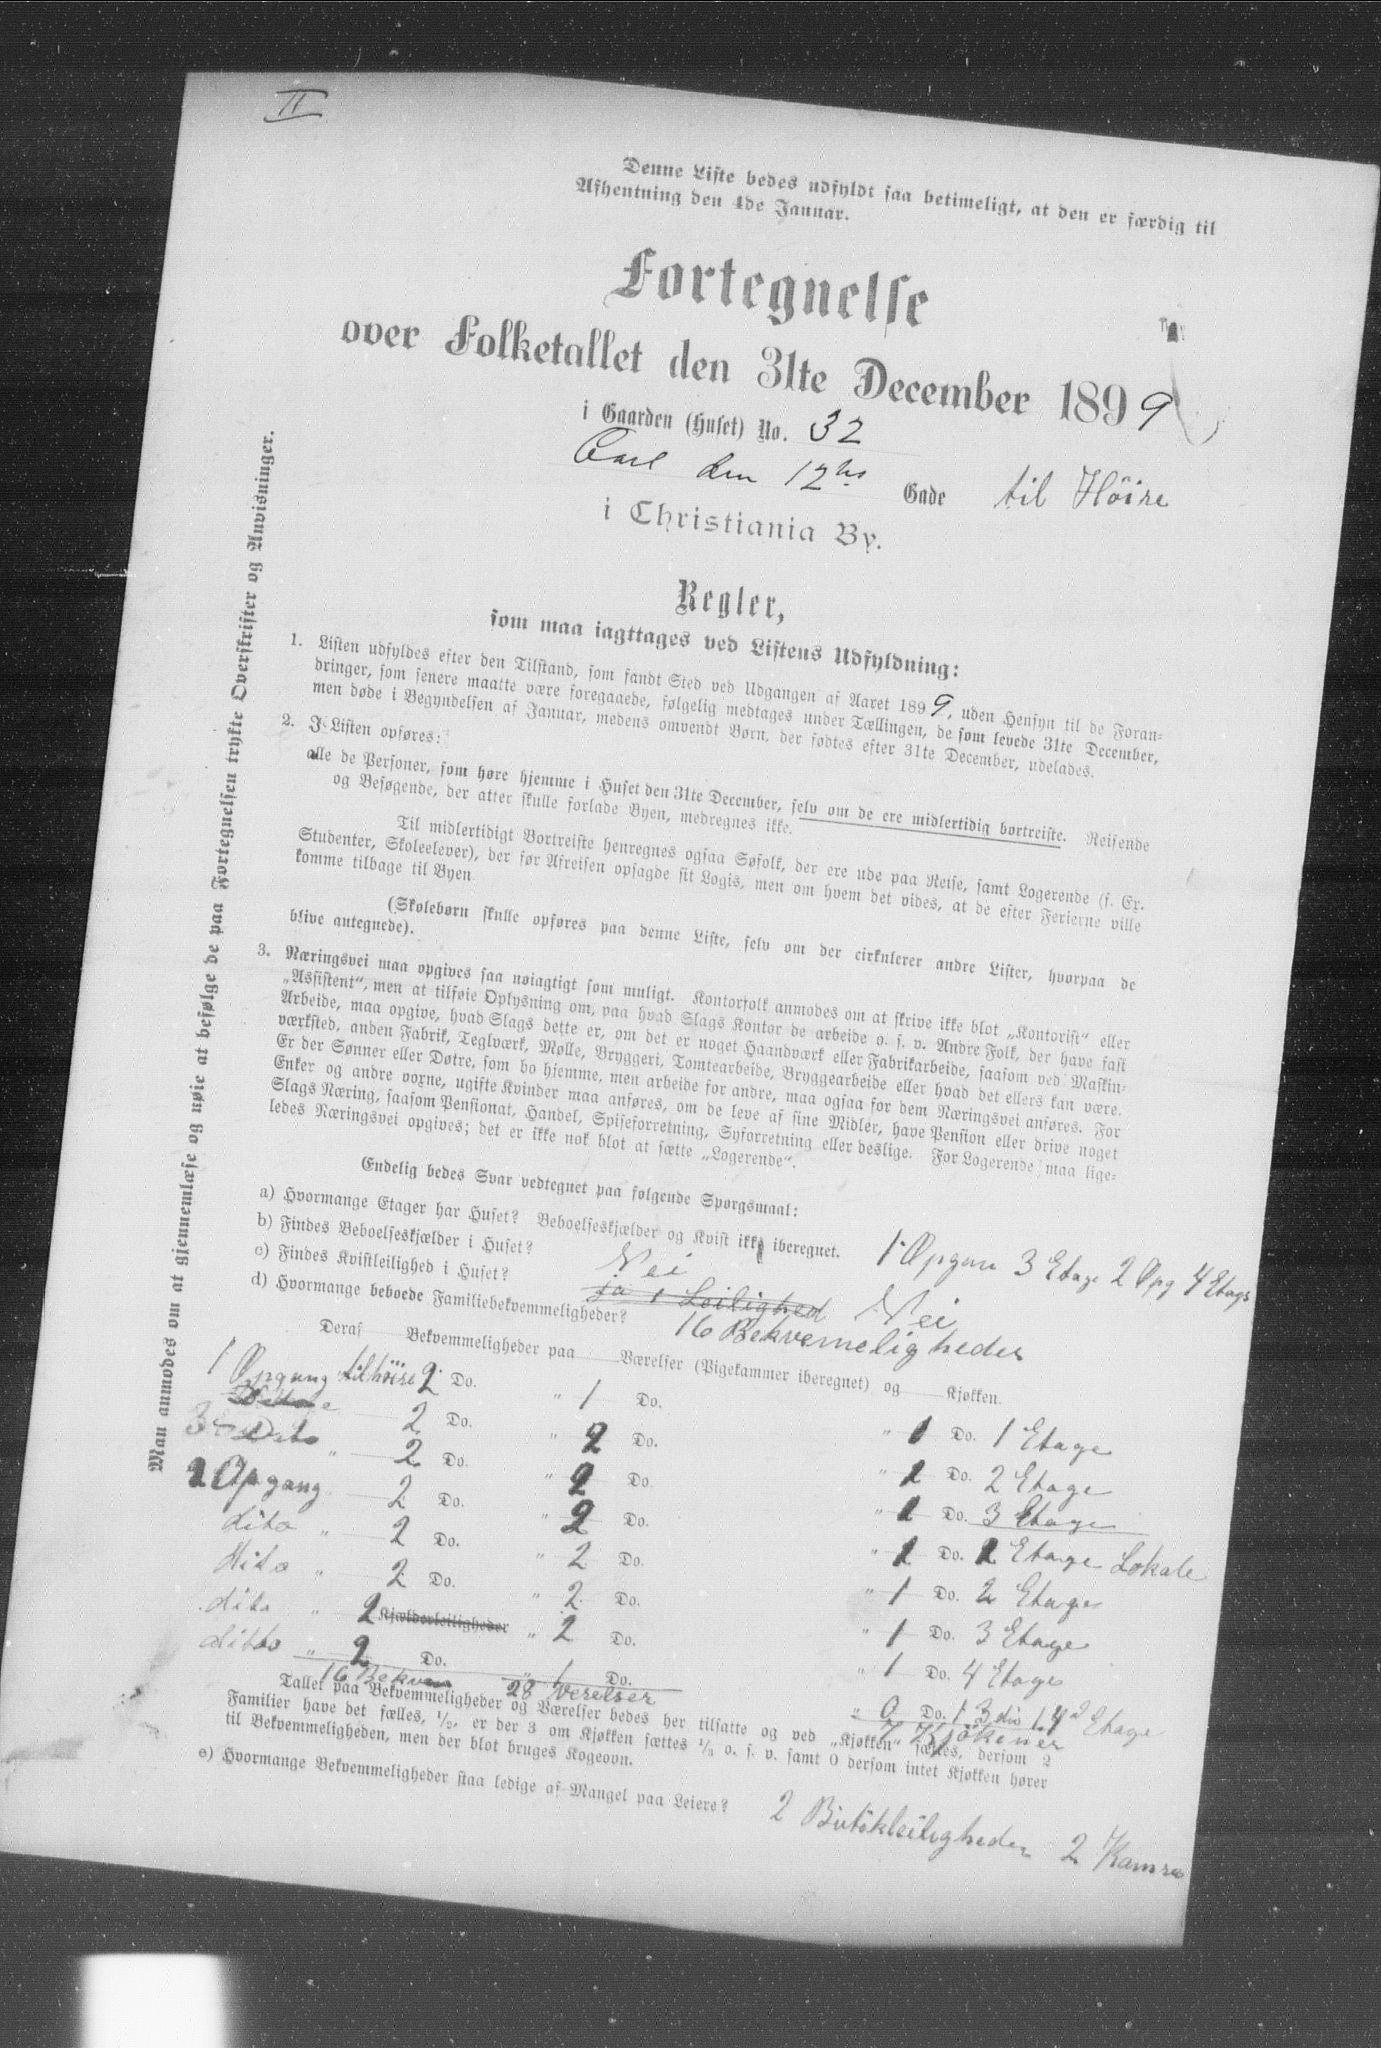 II
Denne Liste bedes udfyldt saa betimeligt, at den er færdig til
Afhentning den 4de Januar.
Fortegnelse
over Folketallet den 31te December 1899
i Gaarden (Huset) No. 32
Carl den 12tes Gade til Höire
i Christiania By.
Regler,
som maa iagttages ved Listens Udfyldning:
1. Listen udfyldes efter den Tilstand, som fandt Sted ved Udgangen af Aaret 1899, uden Hensyn til de Foran-
dringer, som senere maatte være foregaaede, følgelig medtages under Tællingen, de som levede 31te December,
men døde i Begyndelsen af Januar, medens omvendt Børn, der fødtes efter 31te December, udelades.
2. I Listen opføres:
alle de Personer, som høre hjemme i Huset den 31te December, selv om de ere midlertidig bortreiste. Reisende
og Besøgende, der atter skulle forlade Byen, medregnes ikke.
Til midlertidigt Bortreiste henregnes ogsaa Søfolk, der ere ude paa Reise, samt Logerende (f. Ex.
Studenter, Skoleelever), der før Afreisen opsagde sit Logis, men om hvem det vides, at de efter Ferierne ville
komme tilbage til Byen
(Skolebørn skulle opføres paa denne Liste, selv om der cirkulerer andre Lister, hvorpaa de
blive antegnede).
3. Næringsvei maa opgives saa nøiagtigt som muligt. Kontorfolk anmodes om at skrive ikke blot „Kontorist“ eller
„Assistent“, men at tilføie Oplysning om, paa hvad Slags Kontor de arbeide o. s. v. Andre Folk, der have fast
Arbeide, maa opgive, hvad Slags dette er, om det er noget Haandværk eller Fabrikarbeide, saasom ved Maskin-
værksted, anden Fabrik, Teglværk, Mølle, Bryggeri, Tomtearbeide, Bryggearbeide eller hvad det ellers kan være.
Er der Sønner eller Døtre, som bo hjemme, men arbeide for andre, maa ogsaa for dem Næringsvei anføres. For
Enker og andre voxne, ugifte Kvinder maa anføres, om de leve af sine Midler, have Pension eller drive noget
Slags Næring, saasom Pensionat, Handel, Spiseforretning, Syforretning eller deslige. For Logerende maa lige-
ledes Næringsvei opgives; det er ikke nok blot at sætte „Logerende“.
Endelig bedes Svar vedtegnet paa følgende Spørgsmaal:
a) Hvormange Etager har Huset? Beboelseskjælder og Kvist ikke iberegnet. 1 Opgan 3 Etage 2 Opg 4 Etage
b) Findes Beboelseskjælder i Huset? Nei
c) Findes Kvistleilighed i Huset? ja 1 Leilighed Nei
d) Hvormange beboede Familiebekvemmeligheder? 16 Bekvemeligheder
Deraf Bekvemmeligheder paa Værelser (Pigekammer iberegnet) og Kjøkken.
1 Opgang til höire 2 Do. " 1 Do. " 1 Do. 1 Etage
2 Do. " 2 Do. " 1 Do. 2 Etage
Dito " 2 Do. " 2 Do. " 1 Do. 3 Etage
2 Opgang 2 Do. " 2 Do. " 1 Do. 1 Etage Lokale
dito " 2 Do. " 2 Do. " 1 Do. 2 Etage
dito " 2 Do. " 2 Do. " 1 Do. 3 Etage
dito " 2 Kjælderleiligheder " 2 Do. " 1 Do. 4 Etage
ditto " 2 Do. " 1 Do. " 0 Do. 1 3 1 4 Etage
16 Bekvem 28 verelser 7 Kjökener
Tallet paa Bekvemmeligheder og Værelser bedes her tilsatte og ved „Kjøkken“ sættes, dersom 2
Familier have det fælles, 1/2, er der 3 om Kjøkken sættes 1/3 o. s. v. samt 0 dersom intet Kjøkken hører
til Bekvemmeligheden, men der blot bruges Kogeovn.
e) Hvormange Bekvemmeligheder staa ledige af Mangel paa Leiere? 2 Butikleiligheder 2 Kamre
Man anmodes om at gjennemlæse og nøie at befølge de paa Fortegnelsen trykte Overskrifter og Anvisninger.